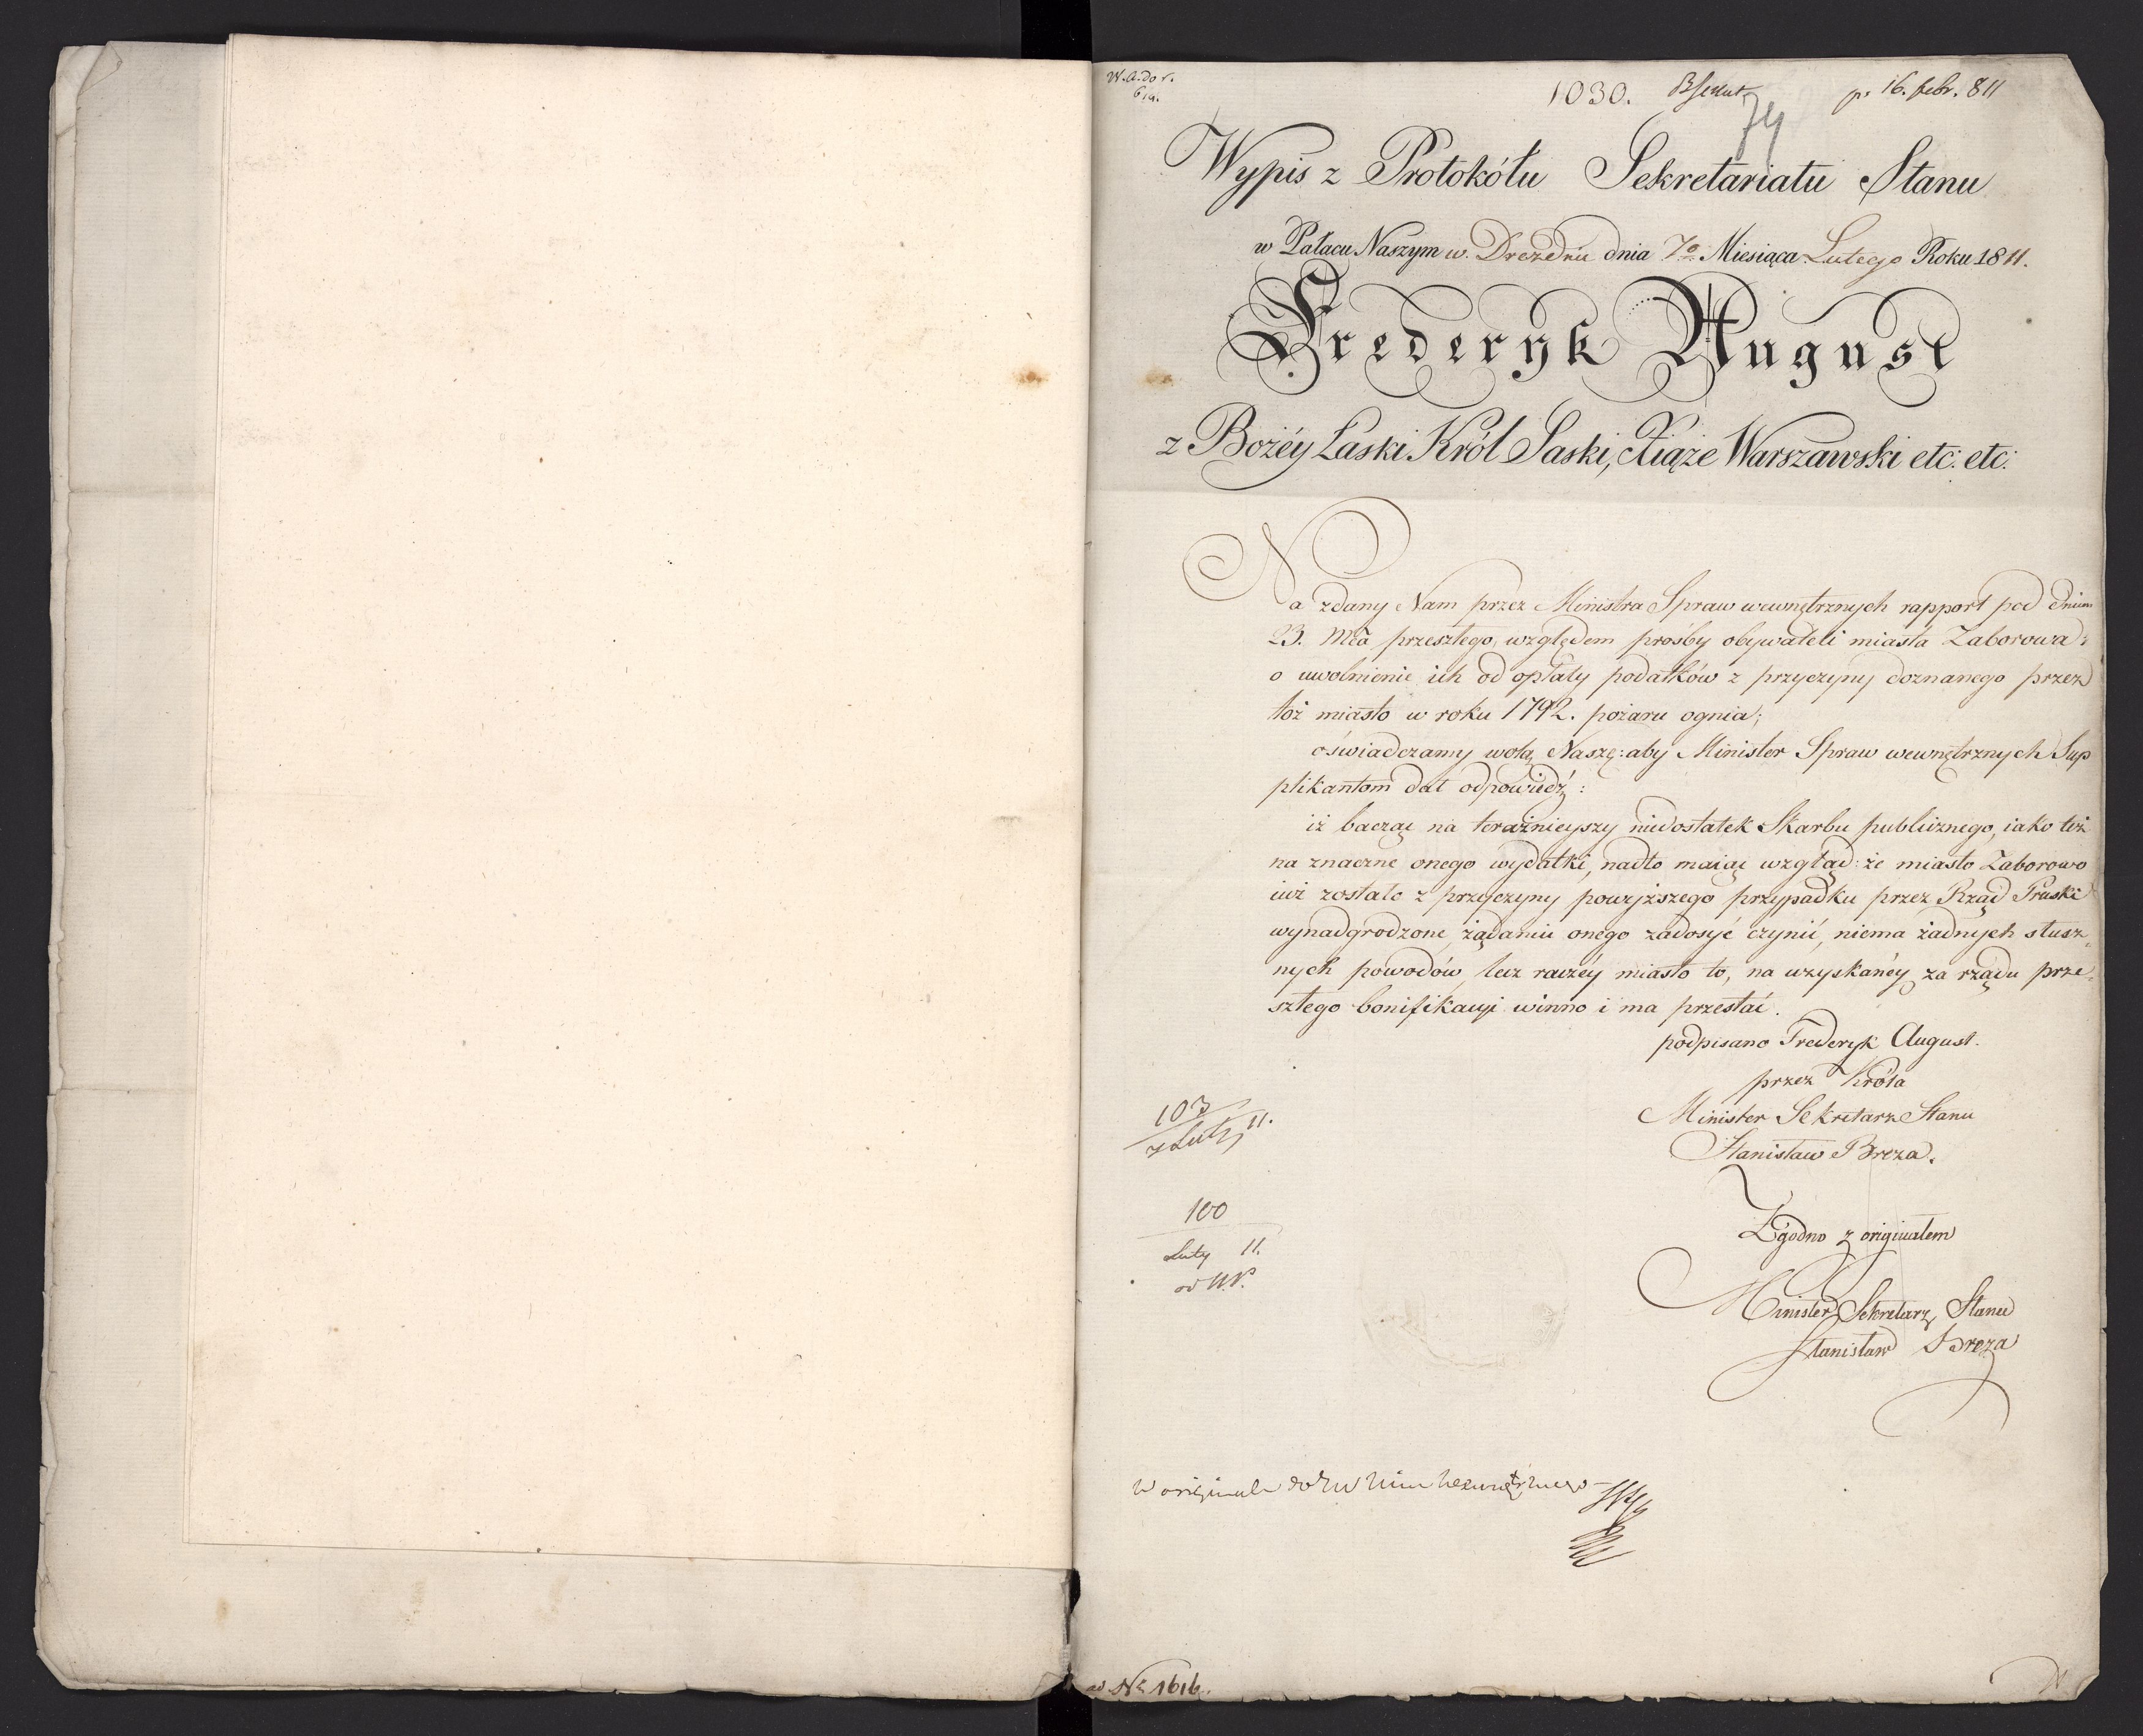 1030.
p. 16. febr. 811
74
Wypis z Protokółu Sekretariatu Stanu
w Pałacu Naszym w Dreznie dnia 7o Miesiąca Lutego Roku 1811.
Frederyk August
z Bożéy Łaski Król Saski, Xiąże Warszawski etc: etc:
Na zdany Nam przez Ministra Spraw wewnętrznych rapport pod dniem
23. Mca przeszłego, względem prośby obywateli miasta Zaborowa:
o uwolnienie ich od opłaty podatków z przyczyny doznanego przez
toż miasto w roku 1792. pożaru ognia;
oświadczamy wolą Naszę: aby Minister Spraw wewnętrznych Sup
plikantom dał odpowiedź:
iż bacząc na teraźnieyszy niedostatek Skarbu publicznego, iako też
na znaczne onego wydatki, nadto maiąc wzgląd: że miasto Zaborowo
iuż zostało z przyczyny powyższego przypadku przez Rząd Pruski
wynadgrodzone, żądaniu onego zadosyć czynić, niema żadnych słusz=
nych powodów, lecz raczéy miasto to, na uzyskanéy za rządu prze=
szłego bonifikacyi winno i ma przestać.
podpisano Frederyk August.
przez Króla
Minister Sekretarz Stanu
Stanisław Breza.
103
7 Luty 11.
100
Luty 11.
od W.
Zgodno z originałem
Minister Sekretarz Stanu
Stanisław Breza
W originale do
ad Nr 1616.